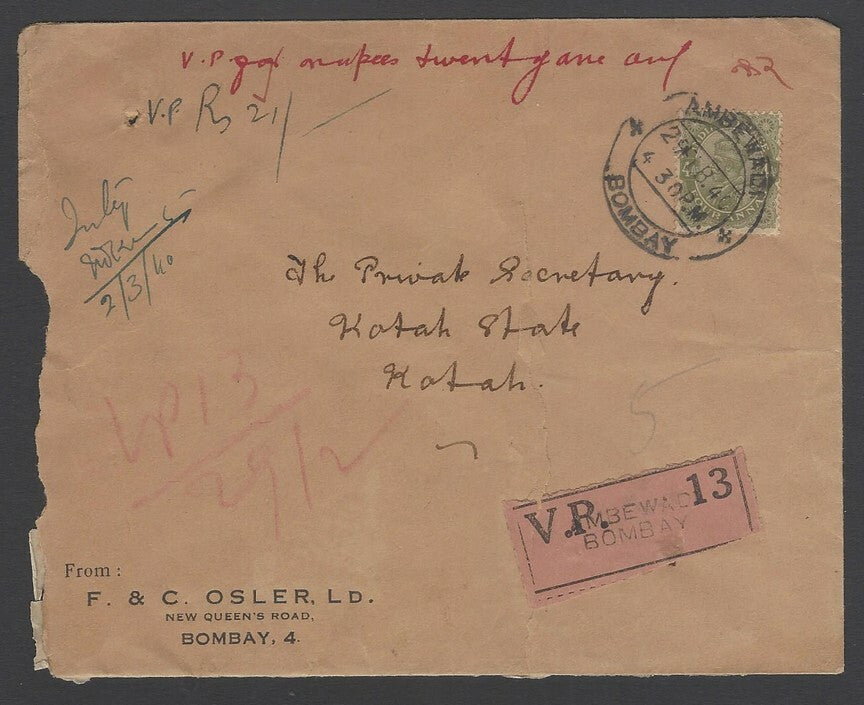 V.P. for rupees twenty one only
V.P. Rs 21/-
2/3/40
AMBEWADI
29 FEB. 40
4 30 P.M.
BOMBAY
ANNA
The Private Secretary.
Kotah State
Kotah.
VP 13
29/2
5
V.P. 13
AMBEWADI
BOMBAY
From :
F. & C. OSLER, LD.
NEW QUEEN'S ROAD,
BOMBAY, 4.